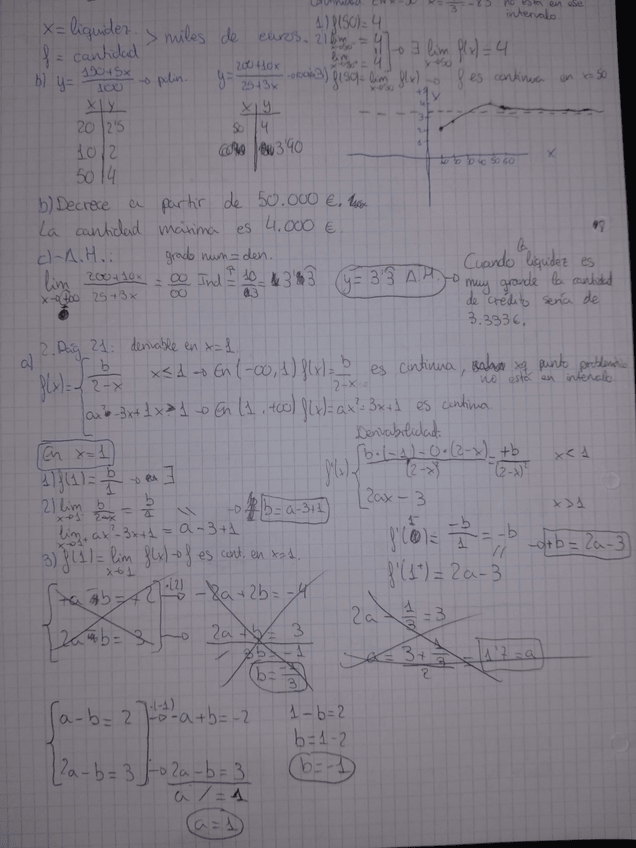 no está en ese
intervalo.
1) f(50) = 4
x = liquidez
f = cantidad
> miles de euros.
2) lim = 4
lim = 4
→ ∃ lim f(x) = 4
x→50
3) f(50) = lim f(x) → f es continua en x=50
x→50
b) y = (150+5x)/100
y = (200+10x)/(25+3x)
x | y
20 | 2'5
10 | 2
50 | 4
x | y
50 | 4
3'40
y
x
10 20 30 40 50 60
b) Decrece a partir de 50.000 €.
La cantidad máxima es 4.000 €
c) A.H.: grado num = den.
lim (200+10x)/(25+3x) = ∞/∞ Ind = 10/3 = 3'3
y = 3'3 A.H →
Cuando la liquidez es
muy grande la cantidad
de crédito sería de
3.333€.
2. Pág 21: derivable en x=1.
a) f(x) = { b/(2-x) x≤1 → En (-∞,1) f(x) = b/(2-x) es continua, xq punto problemático
no está en intervalo.
ax²-3x+1 x>1 → En (1,+∞) f(x) = ax²-3x+1 es continua
En x=1
1) f(1) = b/1 → ∃
2) lim b/(2-x) = b/1
x→1⁻
lim ax²-3x+1 = a-3+1
x→1⁺
→ b = a-3+1
3) f(1) = lim f(x) → f es cont. en x=1.
x→1
Derivabilidad:
f'(x) { (b·(-1)-0·(2-x))/(2-x)² = +b/(2-x)² x<1
2ax-3 x>1
f'(1⁻) = -b/1 = -b
→ +b = 2a-3
f'(1⁺) = 2a-3
2a b = 3
·(2) → -2a+2b = -4
2a+b = 3
3b = -1
b = -1/3
2a - 1/3 = 3
a = (3 + 1/3)/2 = 1'7 = a
a-b = 2 ·(-1) → -a+b = -2
2a-b = 3 → 2a-b = 3
a / = 1
a = 1
1-b=2
b=1-2
b=-1